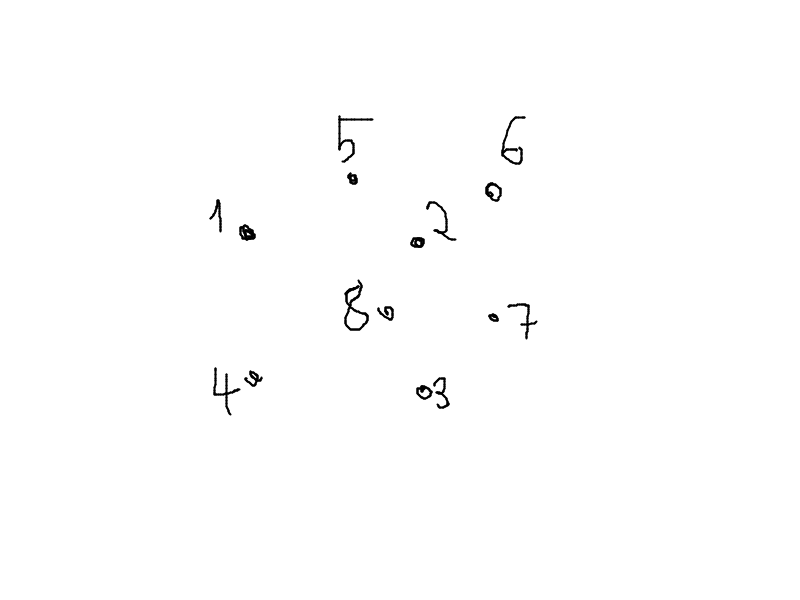 5 6
1 2
8 7
4 3